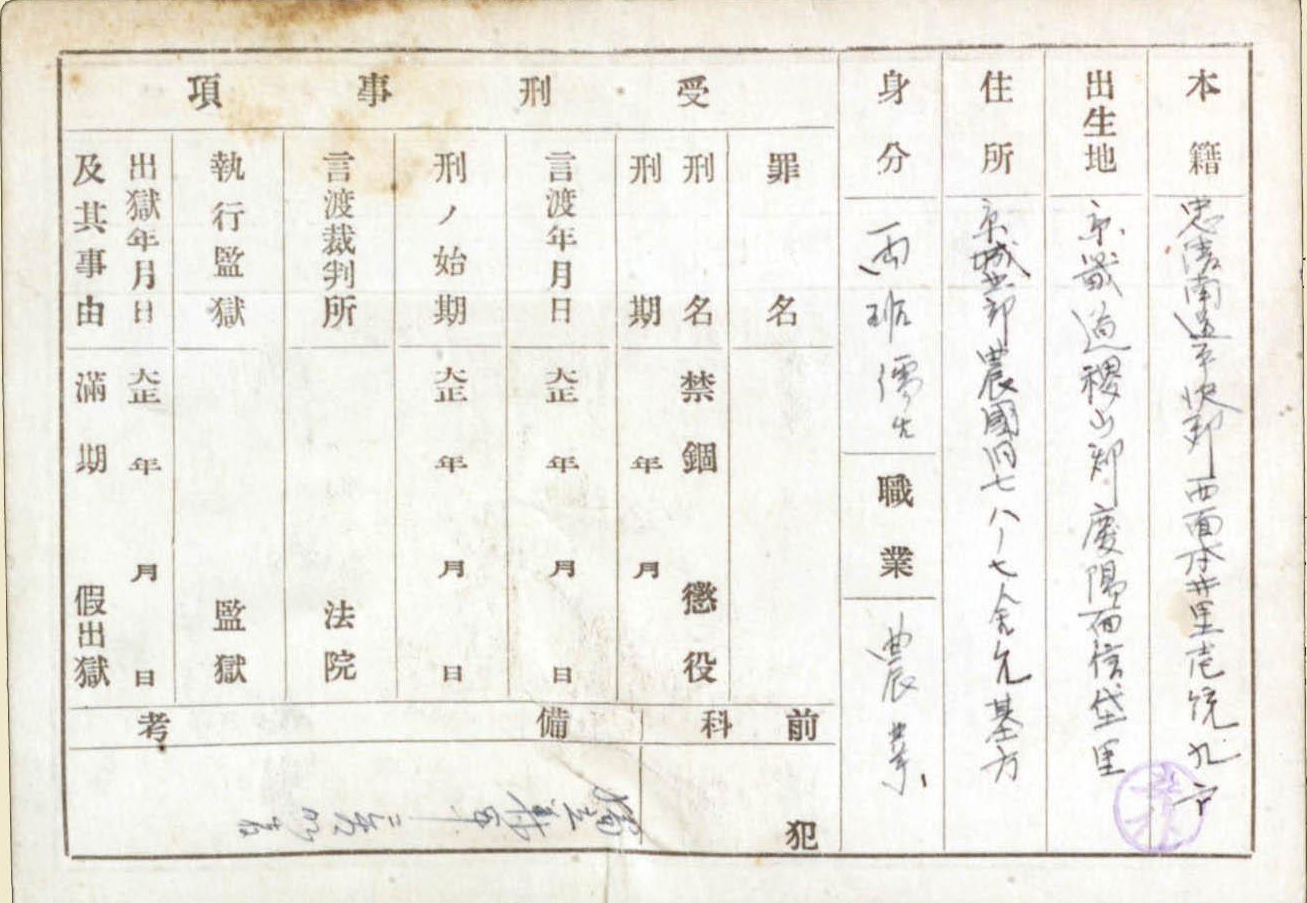 本籍
忠淸南道
郡西面
井里壱統九戸
出生地
京畿道稷山郡慶陽面信垈里
住所
京城
農國洞七八ノ七
基方
身分
両班儒生
職業
農業
受刑事項
罪名
刑名
刑期
禁錮
懲役
年
月
言渡年月日
大正
年
月
日
刑ノ始期
大正
年
月
日
言渡裁判所
法院
執行監獄
監獄
出獄年月日
及其事由
大正
年
月
日
滿期
假出獄
前科
犯
備考
獨立